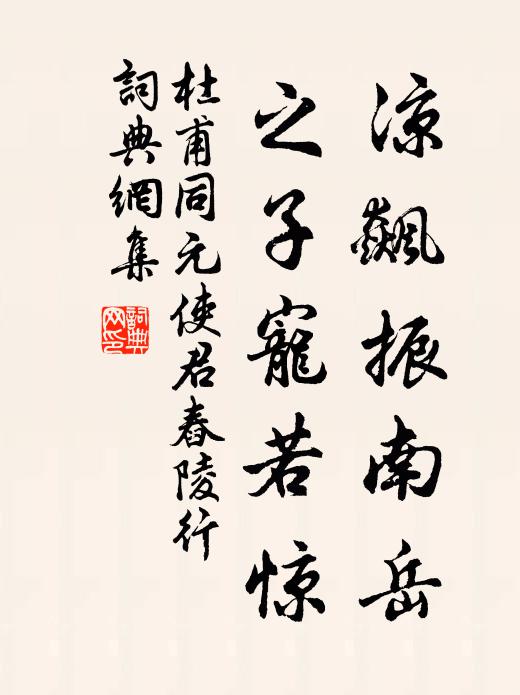 涼飆振南岳
之子寵若惊
杜甫同元使君舂陵行
詞典網集
詞典网印